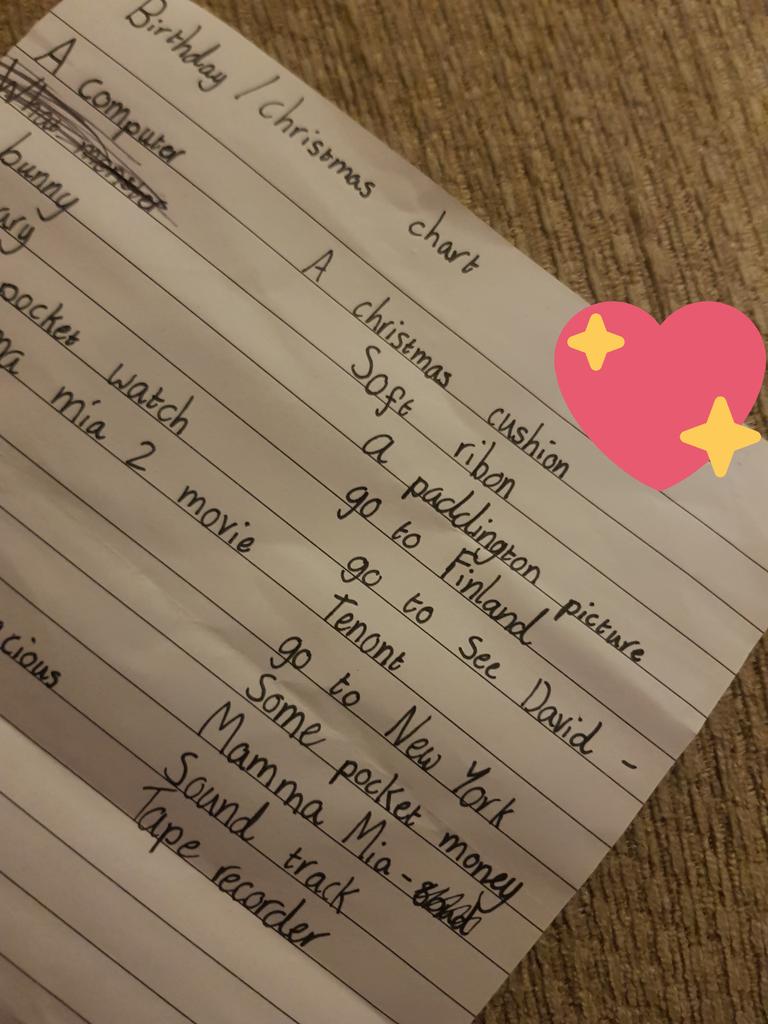 Birthday / christmas chart
A computer
bunny
pocket watch
mia 2 movie
A christmas cushion
Soft ribon
a paddington picture
go to Finland
go to see David -
Tenont
go to New York
Some pocket money
Mamma Mia -
Sound track
Tape recorder